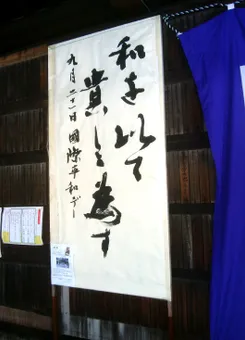 和を以て
貴しと為す
九月二十一日 國際平和デー